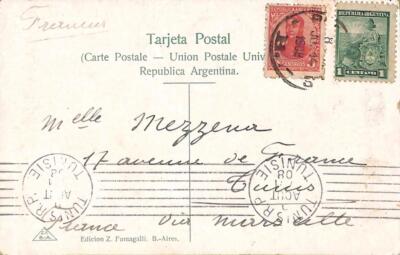 Francus
Tarjeta Postal
(Carte Postale — Union Postale Univ
Republica Argentina.
REPUBLICA ARGENTINA
1 CENTAVO 1
Melle Mezzena
17 avenue de France
Tunis
France via Marseille
TUNIS R.P.
AOUT
08
TUNISIE
TUNIS R.P.
AOUT
08
TUNISIE
Edicion Z. Fumagalli. B.-Aires.